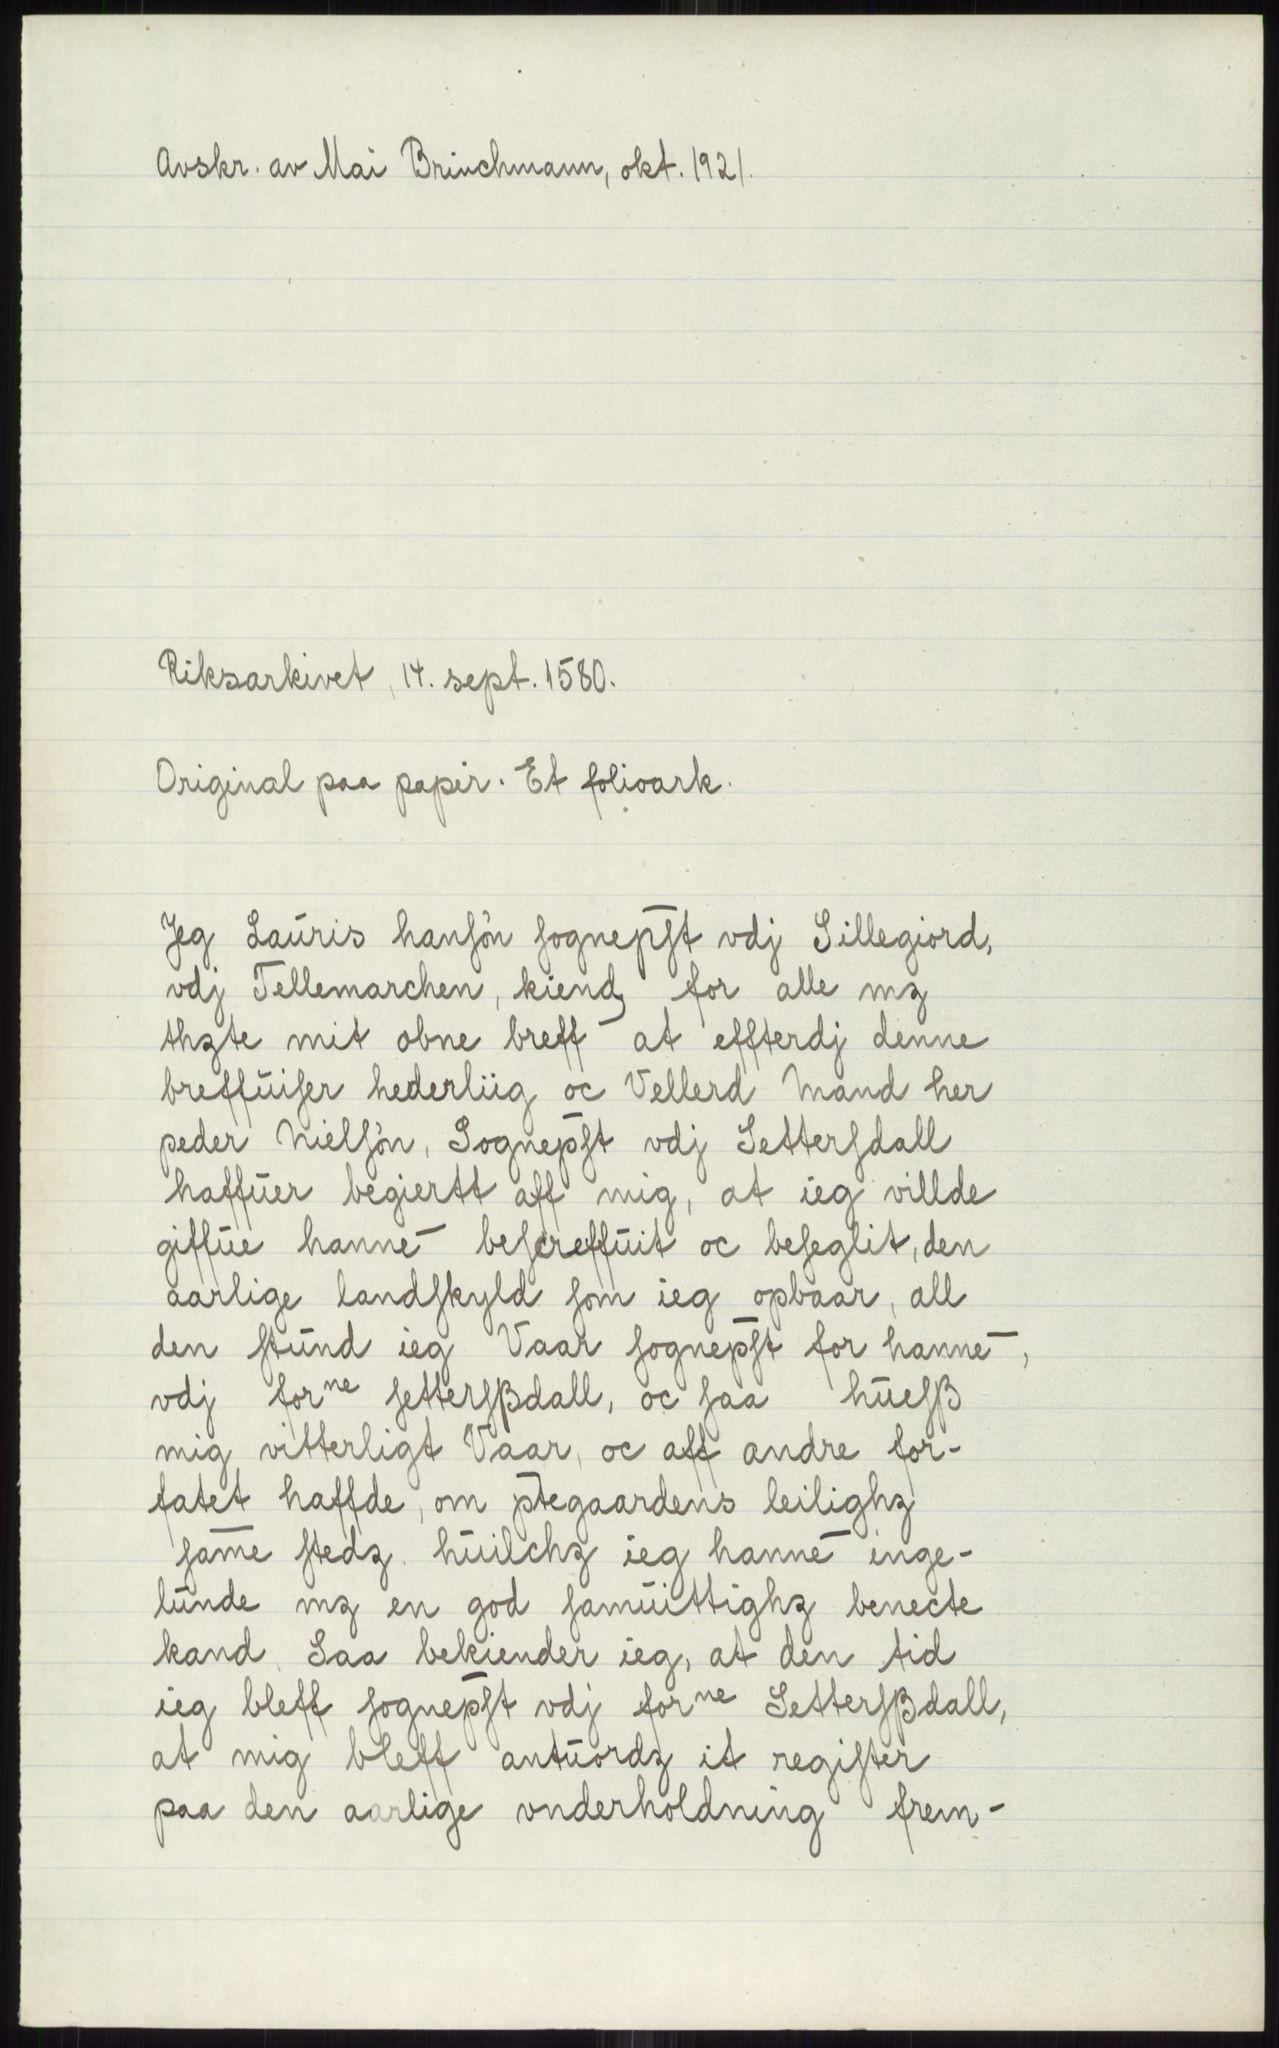 Avskr. av Mai Brinchmann, okt. 1921.
Riksarkivet, 14. sept. 1580.
Original paa papir. Et folioark.
Jeg Lauris hanſøn ſognep̄ſt vdj Sillegiord,
vdj Tellemarchen, kiend for alle mꝫ
thꝫte mit obne breff at effterdj denne
breffuiſer hederliig oc Vellerd Mand her
peder Nielſøn, Sognep̄ſt vdj Setterſdall
haffuer begiertt aff mig, at ieg villde
giffue hanne̅ beſcreffuit oc beſeglit, den
aarlige landſkyld ſom ieg opbaar, all
den ſtund ieg Vaar ſognep̄ſt for hanne̅,
vdj forⁿᵉ ſetterſßdall, oc ſaa hueſß
mig vitterligt Vaar, oc aff andre for-
fatet haffde, om p̄tegaardens leilighꝫ
ſam̅e ſtedꝫ. huilchꝫ ieg hanne̅ inge-
lunde mꝫ en god ſamuittighꝫ benecte
kand. Saa bekiender ieg, at den tid
ieg bleff ſognep̄ſt vdj forⁿᵉ Setterſßdall,
at mig bleff antuordꝫ it regiſter
paa den aarlige vnderholdning frem-